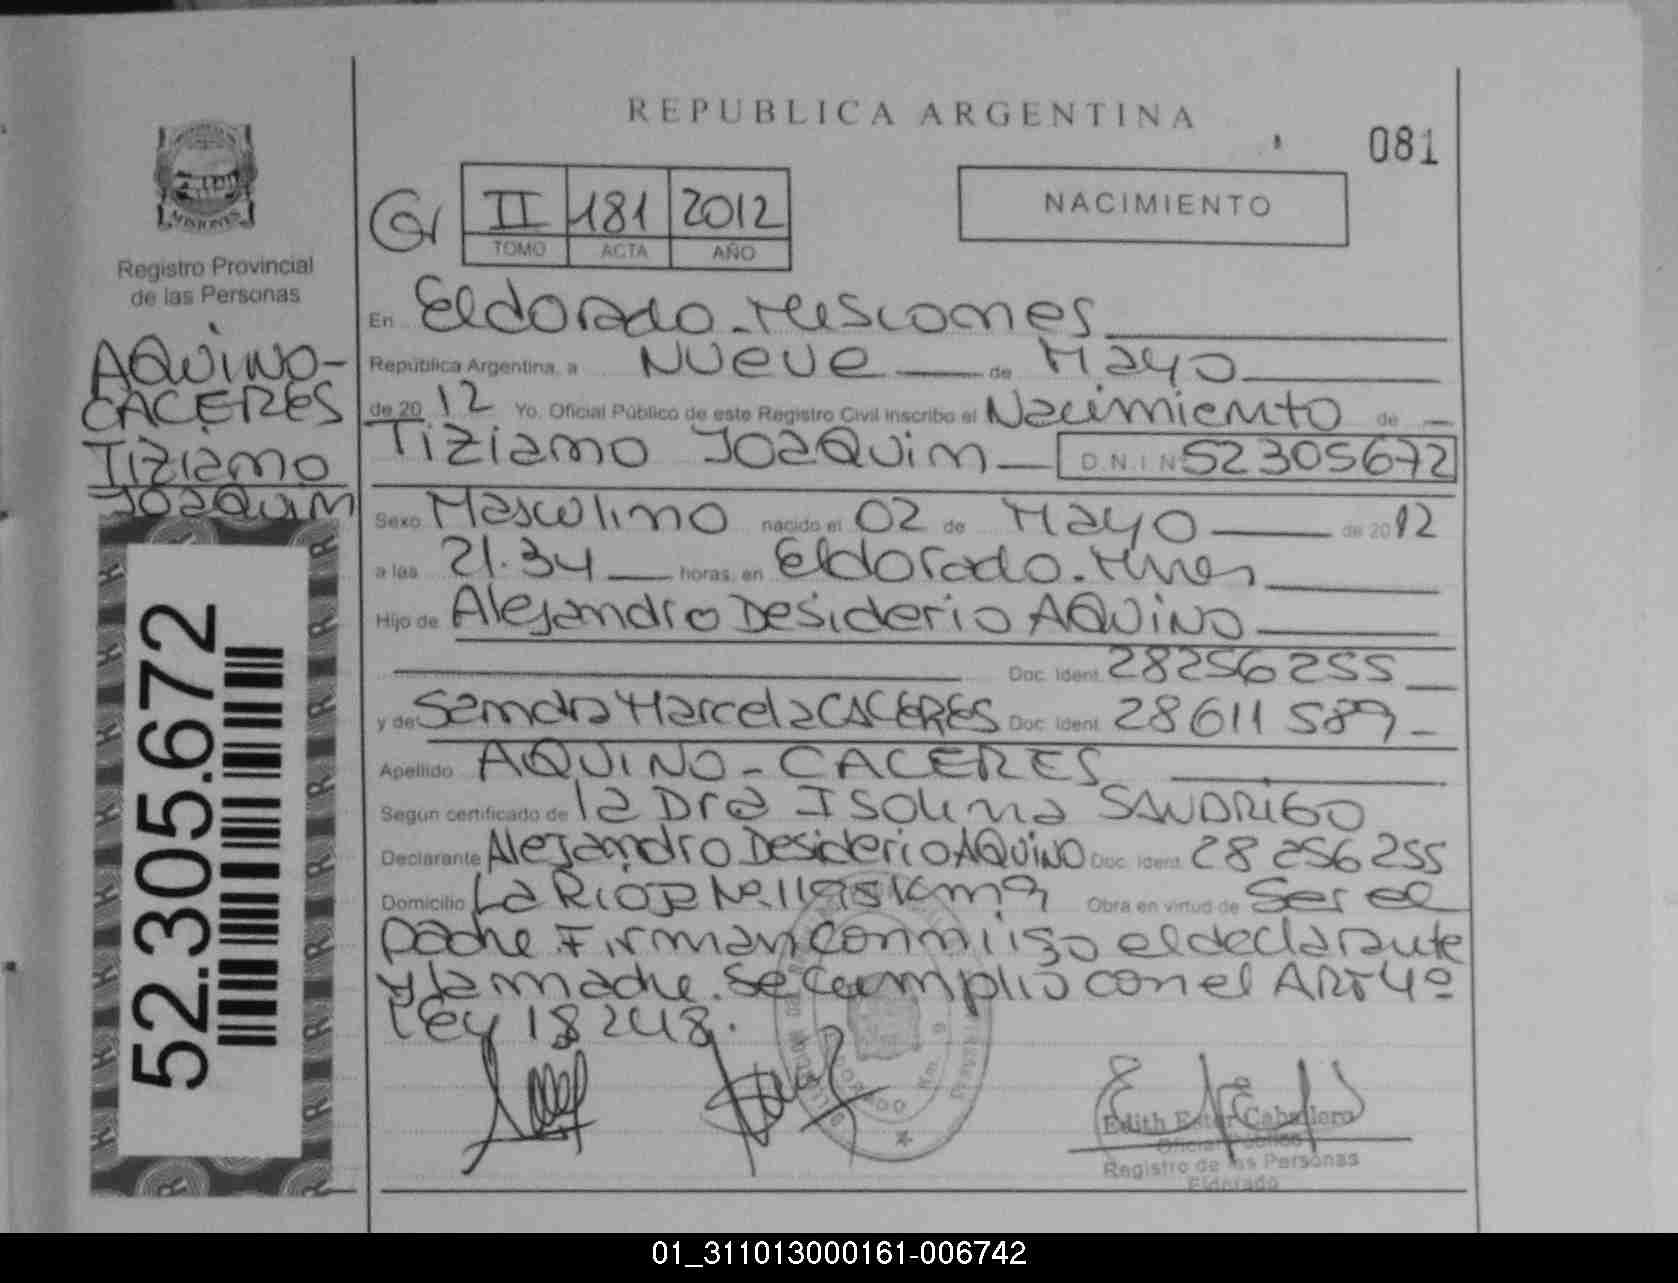 REPUBLICA ARGENTINA
081
II 181 2012
TOMO ACTA AÑO
NACIMIENTO
MISIONES
Registro Provincial
de las Personas
AQUINO-
CACERES
Tiziano
Joaquin
52.305.672
En Eldorado - Misiones
República Argentina, a Nueve de Mayo
de 2012 Yo, Oficial Público de este Registro Civil inscribo el Nacimiento de
Tiziano Joaquin D.N.I Nº 52305672
Sexo Masculino nacido el 02 de Mayo de 2012
a las 21.34 horas, en Eldorado - Mnes
Hijo de Alejandro Desiderio AQUINO
Doc. Ident. 28256255
y de Sandra Marcela CACERES Doc. Ident. 28611589
Apellido AQUINO - CACERES
Según certificado de la Dra Isolina SANDRIGO
Declarante Alejandro Desiderio AQUINO Doc. Ident. 28256255
Domicilio La Rioja Km 9 Obra en virtud de Ser el
padre. Firman conmigo el declarante
y la madre. Se cumplió con el ART 4º
Ley 18248.
Edith Ester Caballero
Oficial Público
Registro de las Personas
Eldorado
01_311013000161-006742